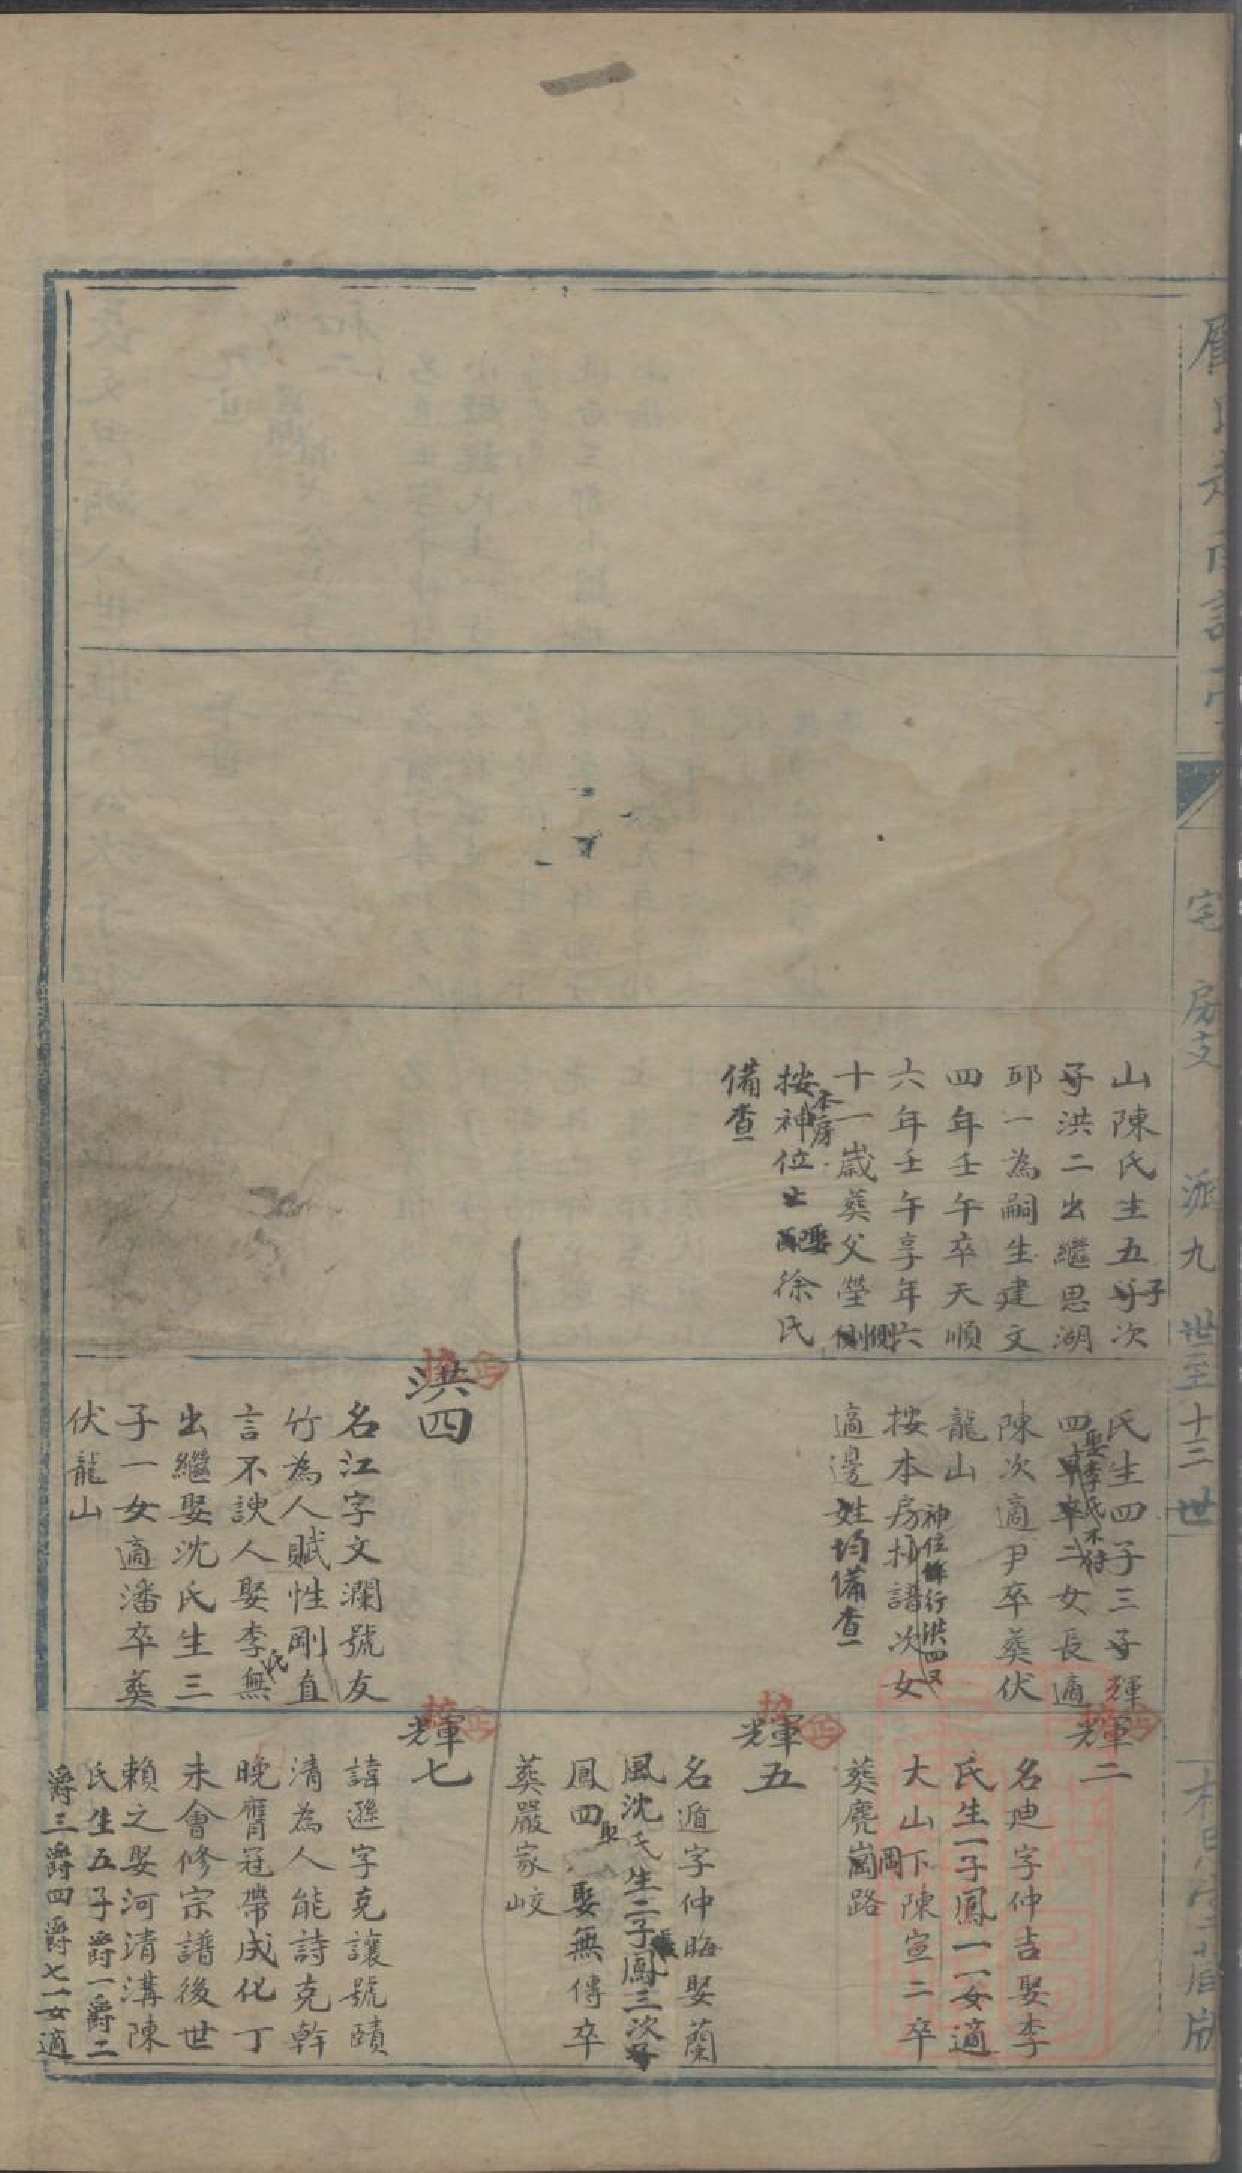 宅
房支
派九世至十三世
山陳氏生五子次
子洪二出繼思湖
邱一為嗣生建文
四年壬午卒天順
六年壬午享年六
十一歲葬父塋側
本房
按神位上娶徐氏
備查
氏生四子三子輝
四早卒二女長適
娶李氏不待
陳次適尹卒葬伏
龍山
按本房抄譜次女
神位輝行洪四又
適邊姓均備查
洪四
名江字文瀾號友
竹為人賦性剛直
言不諛人娶李氏無
出繼娶沈氏生三
子一女適潘卒葬
伏龍山
輝二
名迪字仲吉娶李
氏生一子鳳一一女適
大山下陳宣二卒
葬麂岡路
輝五
名遁字仲晦娶蘭
風沈氏生二子鳳三次
鳳四娶無傳卒
葬嚴家岐
輝七
諱遜字克讓號頤
清為人能詩克幹
晚膺冠帶成化丁
未會修宗譜後世
賴之娶河清溝陳
氏生五子爵一爵二
爵三爵四爵七一女適